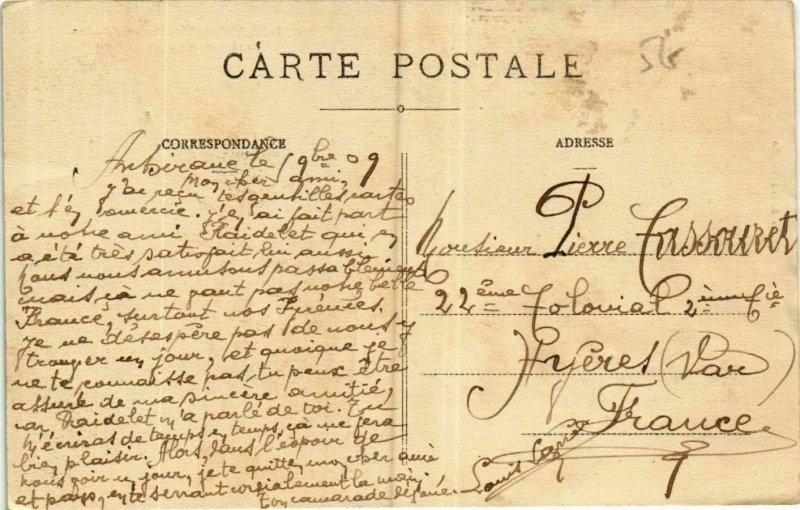 CARTE POSTALE
56
CORRESPONDANCE
le 9bre 09
mon cher ami,
J'ai reçu tes gentilles cartes
et t'en remercie. J'en ai fait part
à notre ami Raidelet qui en
a été très satisfait lui aussi
Nous nous amusons passablement
mais çà ne vaut pas notre belle
France, surtout nos Pyrénées.
Je ne désespère pas de nous y
trouver un jour, et quoique je
ne te connaisse pas, tu peux être
assuré de ma sincère amitié,
car Raidelet m'a parlé de toi. Tu
m'écriras de temps en temps, çà me fera
bien plaisir. Alors, dans l'espoir de
nous voir un jour, je te quitte, mon cher ami
et pays, en te serrant cordialement la main
Ton camarade dévoué. Louis
ADRESSE
Monsieur Pierre
22ème Colonial 2ème Cie
Hyères (Var)
France